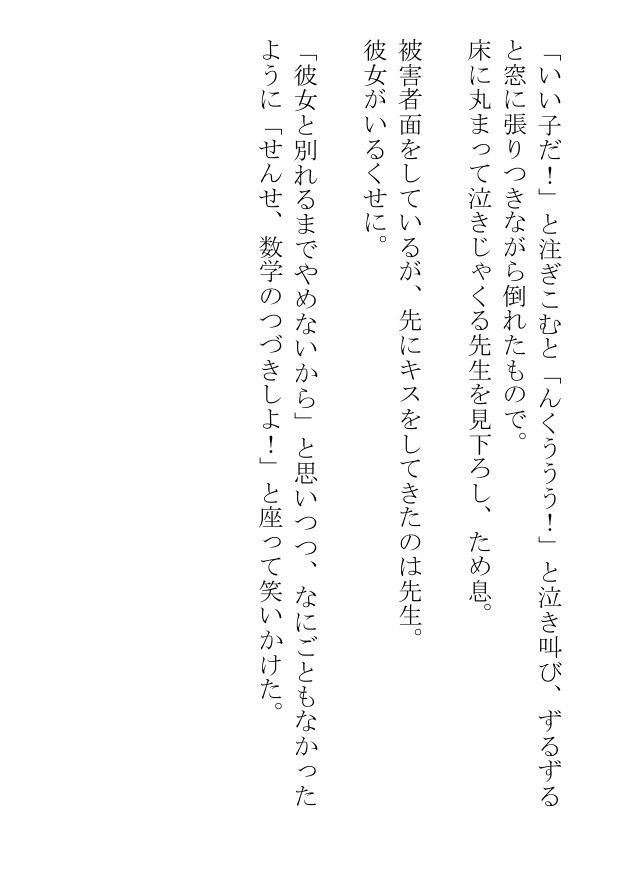 「いい子だ！」と注ぎこむと「んくううう！」と泣き叫び、ずるずる
と窓に張りつきながら倒れたもので。
床に丸まって泣きじゃくる先生を見下ろし、ため息。
被害者面をしているが、先にキスをしてきたのは先生。
彼女がいるくせに。
「彼女と別れるまでやめないから」と思いつつ、なにごともなかった
ように「せんせ、数学のつづきしよ！」と座って笑いかけた。